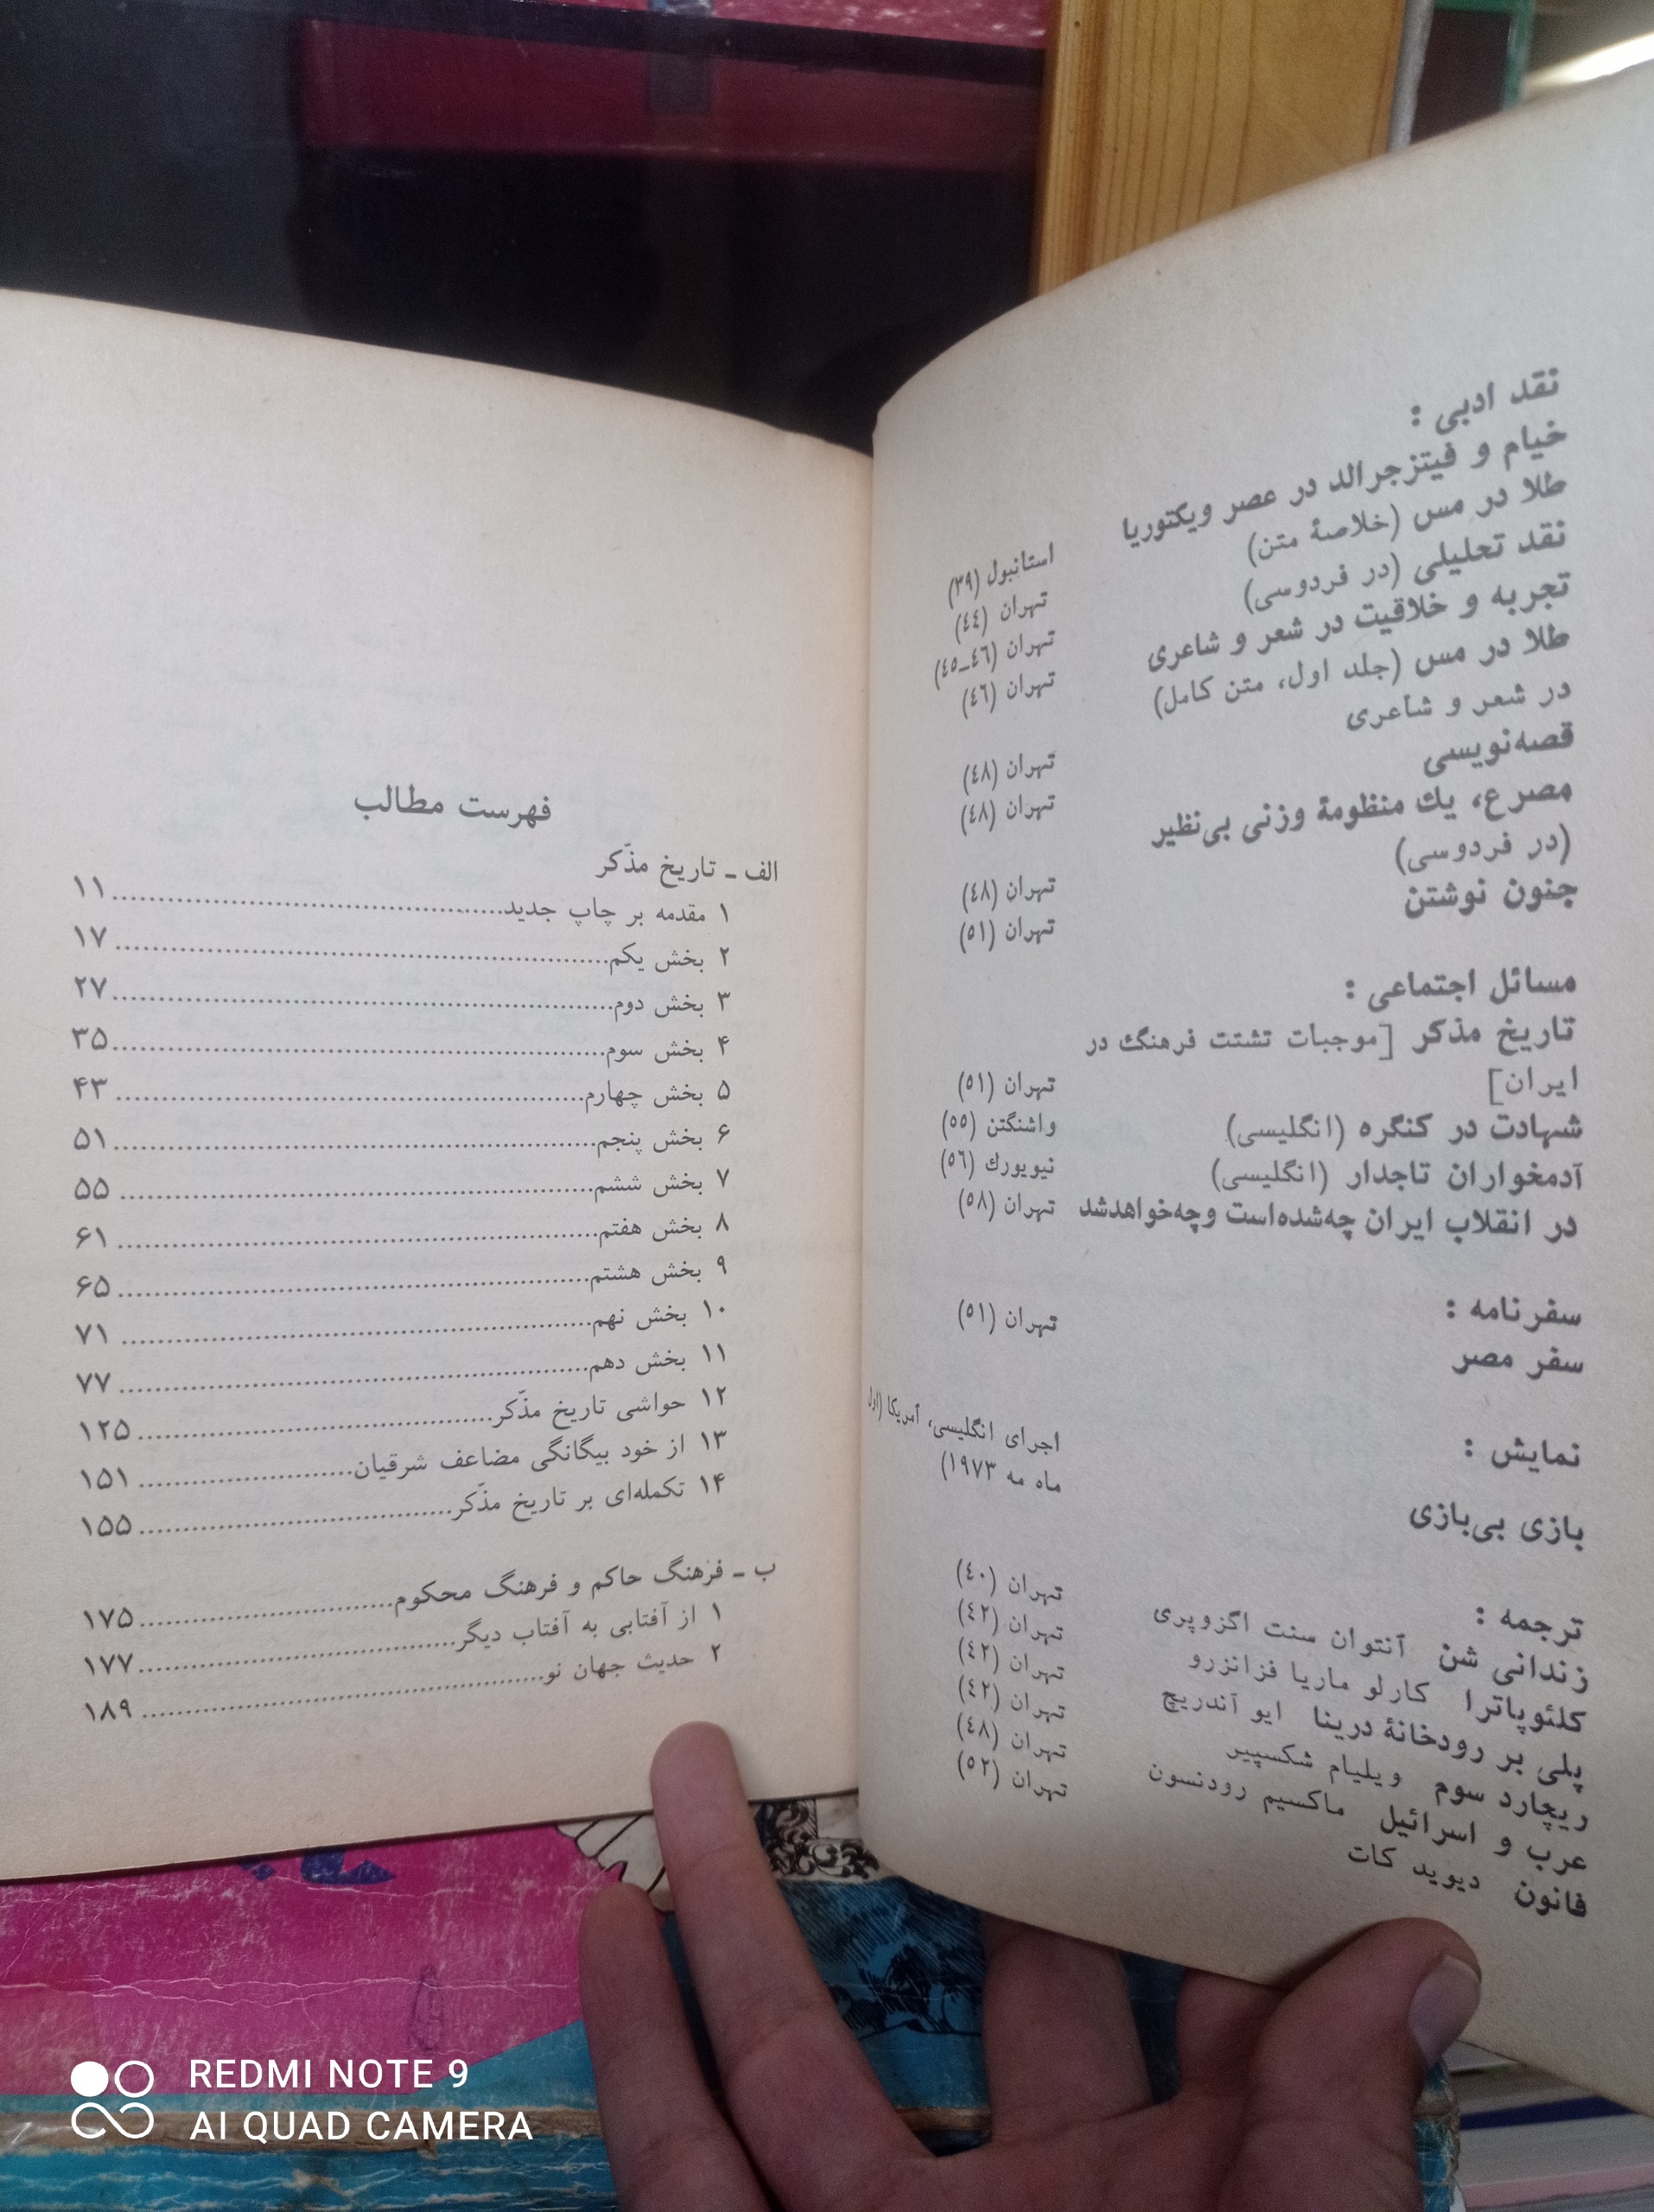 نقد ادبی :
خیام و فیتزجرالد در عصر ویکتوریا استانبول (۳۹)
طلا در مس (خلاصهٔ متن) تهران (٤٤)
نقد تحلیلی (در فردوسی) تهران (٤٦_٤٥)
تجربه و خلاقیت در شعر و شاعری تهران (٤٦)
طلا در مس (جلد اول، متن کامل)
در شعر و شاعری تهران (٤٨)
قصه‌نویسی تهران (٤٨)
مصرع، یك منظومهٔ وزنی بی‌نظیر
(در فردوسی) تهران (٤٨)
جنون نوشتن تهران (٥١)
مسائل اجتماعی :
تاریخ مذکر [موجبات تشتت فرهنگ در
ایران] تهران (٥١)
شهادت در کنگره (انگلیسی) واشنگتن (٥٥)
آدمخواران تاجدار (انگلیسی) نیویورك (٥٦)
در انقلاب ایران چه‌شده‌است وچه‌خواهدشد تهران (٥٨)
سفرنامه :
سفر مصر تهران (٥١)
نمایش :
بازی بی‌بازی اجرای انگلیسی، آمریکا (اول
ماه مه ۱۹۷۳)
ترجمه :
زندانی شن آنتوان سنت اگزوپری تهران (٤٠)
کلئوپاترا کارلو ماریا فزانزرو تهران (٤٢)
پلی بر رودخانهٔ درینا ایو آندریچ تهران (٤٢)
ریچارد سوم ویلیام شکسپیر تهران (٤٢)
عرب و اسرائیل ماکسیم رودنسون تهران (٤٨)
فانون دیوید کات تهران (٥٢)
فهرست مطالب
الف ـ تاریخ مذّکر
۱ مقدمه بر چاپ جدید........................................ ۱۱
۲ بخش یکم........................................ ۱۷
۳ بخش دوم........................................ ۲۷
۴ بخش سوم........................................ ۳۵
۵ بخش چهارم........................................ ۴۳
۶ بخش پنجم........................................ ۵۱
۷ بخش ششم........................................ ۵۵
۸ بخش هفتم........................................ ۶۱
۹ بخش هشتم........................................ ۶۵
۱۰ بخش نهم........................................ ۷۱
۱۱ بخش دهم........................................ ۷۷
۱۲ حواشی تاریخ مذّکر........................................ ۱۲۵
۱۳ از خود بیگانگی مضاعف شرقیان......................... ۱۵۱
۱۴ تکمله‌ای بر تاریخ مذّکر................................ ۱۵۵
ب ـ فرهنگ حاکم و فرهنگ محکوم......................... ۱۷۵
۱ از آفتابی به آفتاب دیگر................................ ۱۷۷
۲ حدیث جهان نو........................................ ۱۸۹
REDMI NOTE 9
AI QUAD CAMERA